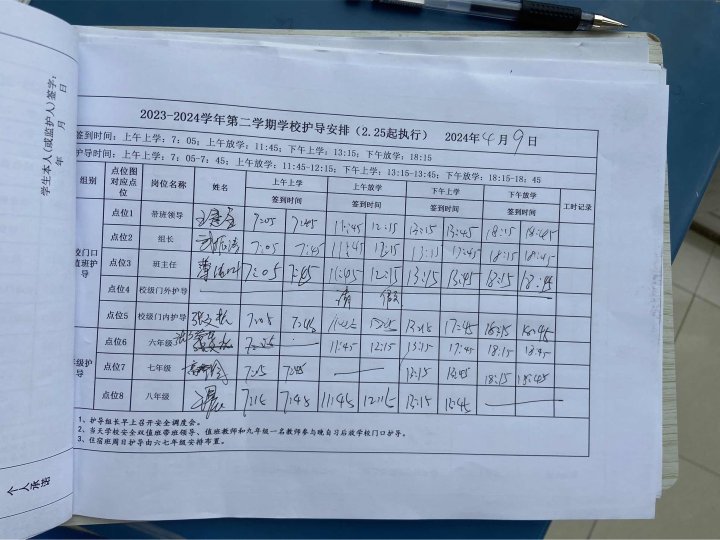 学生本人(或监护人)签字：
年 月 日
个人承诺
2023-2024学年第二学期学校护导安排（2.25起执行） 2024年4月9日
签到时间：上午上学：7：05；上午放学：11:45；下午上学：13:15；下午放学:18:15
护导时间：上午上学：7:05-7：45；上午放学：11:45-12:15；下午放学：13:15-13:45；下午放学：18:15-18：45
组别 点位图对应点位 岗位名称 姓名 上午上学 上午放学 下午上学 下午放学 工时记录
签到时间 签到时间 签到时间 签到时间
点位1 带班领导 7:05 7:45 11:45 12:15 13:15 13:45 18:15 18:45
点位2 组长 7:05 7:45 11:45 12:15 18:15 18:45
校门口值班护导 点位3 班主任 7:05 7:45 11:45 12:15 13:15 13:45 18:15 18:45
点位4 校级门外护导 请 假
点位5 校级门内护导 7:05 7:45 17:45 18:15 18:45
点位6 六年级 11:45 12:15 13:15 17:45 18:15 18:45
级护导 点位7 七年级 7:15 7:45 13:15 13:45 18:15 18:45
点位8 八年级 7:15 7:45 11:45 12:15 13:15 13:45
1、护导组长早上召开安全调度会。
2、当天学校安全双值班带班领导、值班教师和九年级一名教师参与晚自习后放学校门口护导。
3、住宿班周日护导由六七年级安排布置。